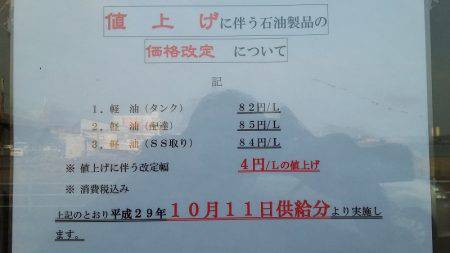 値 上 げに伴う石油製品の
価格改定 について
記
1．軽 油（タンク） 82円/L
2．軽 油（配達） 85円/L
3．軽 油（SS取り） 84円/L
※ 値上げに伴う改定幅 4円/Lの値上げ
※ 消費税込み
上記のとおり平成29年10月11日供給分より実施し
ます。